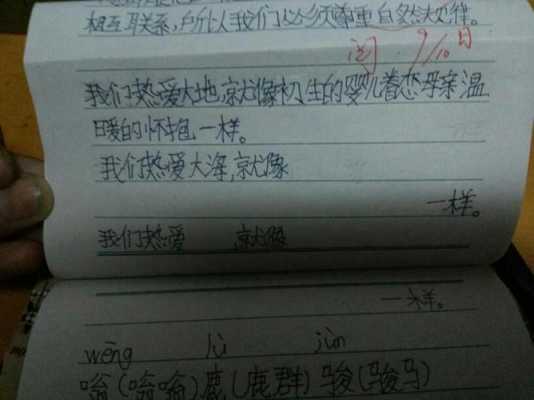 相互联系,所以人我们必须尊重自然大规律。
阅 9/10日
我们热爱大地,就像初生的婴儿眷恋母亲温
暖的怀抱一样。
我们热爱大海,就像
一样。
我们热爱 就像
一样。
wēng lù jùn
嗡(嗡嗡)鹿(鹿群)骏(骏马)